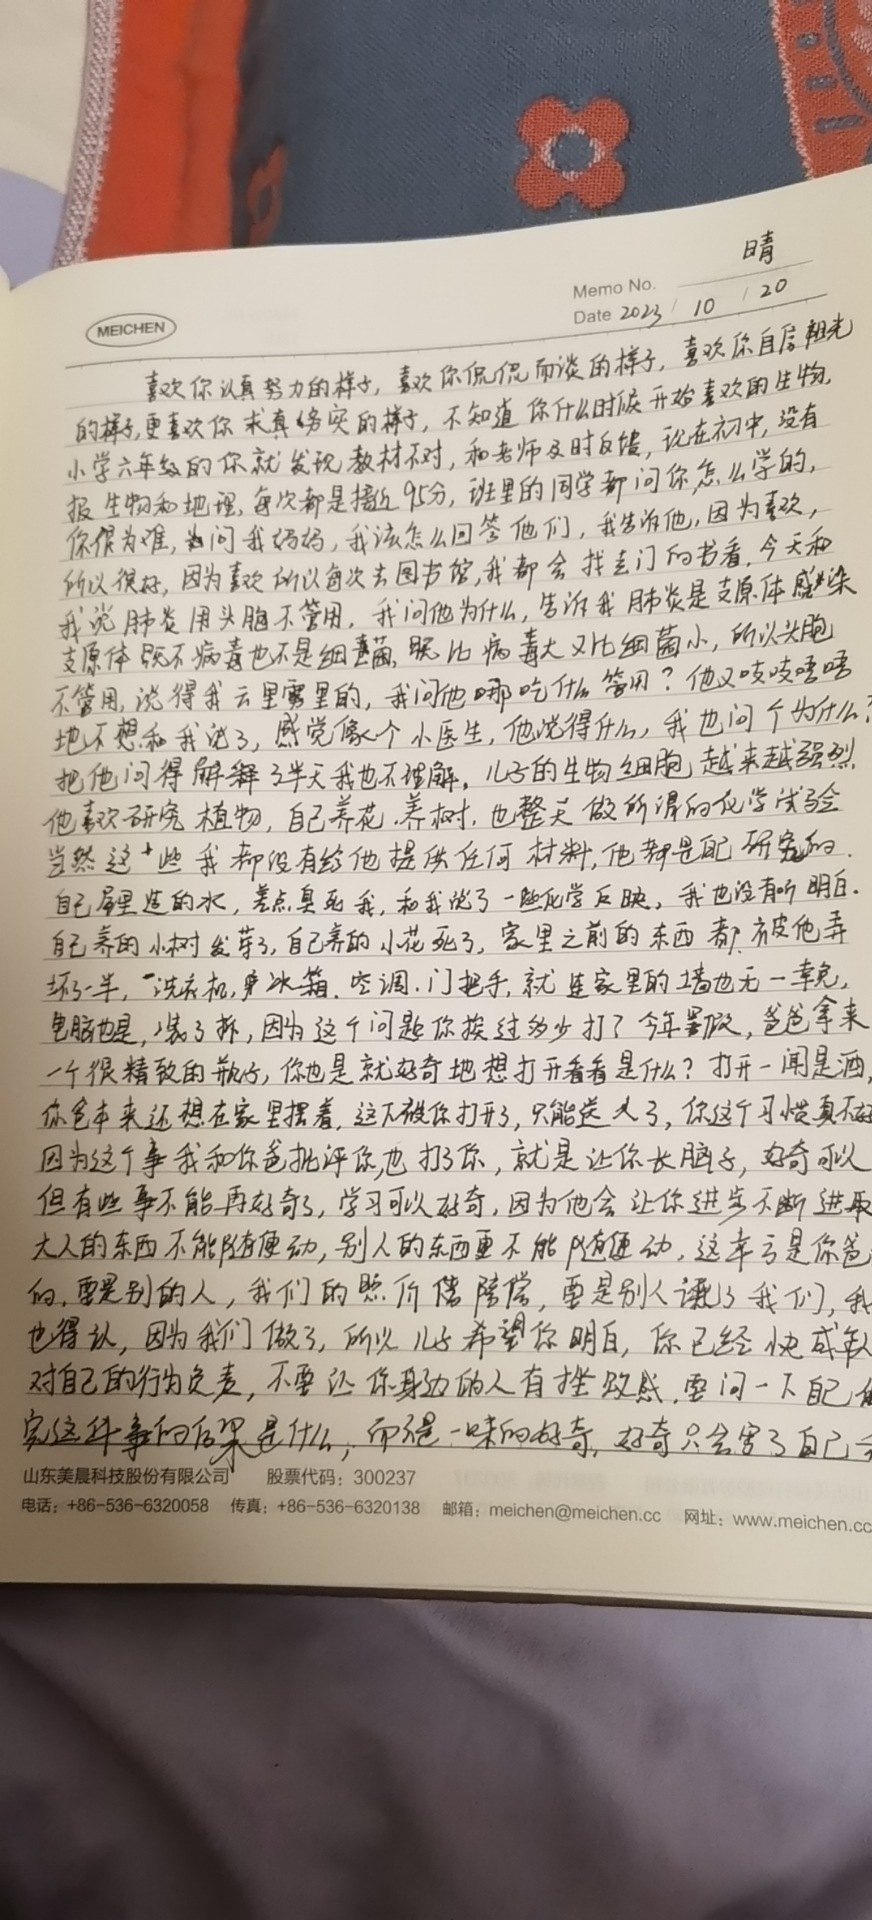 晴
MEICHEN
Memo No.
Date 2023 / 10 / 20
喜欢你认真努力的样子，喜欢你侃侃而谈的样子，喜欢你自信阳光
的样子，更喜欢你求真务实的样子，不知道你什么时候开始喜欢的生物，
小学六年级的你就发现教材不对，和老师及时反馈，现在初中，没有
报生物和地理，每次都是接近95分，班里的同学都问你怎么学的，
你很为难，问我妈妈，我该怎么回答他们，我告诉他，因为喜欢，
所以很好，因为喜欢所以每次去图书馆，我都会找专门的书看，今天和
我说肺炎用头胞不管用，我问他为什么，告诉我肺炎是支原体感染
支原体既不病毒也不是细菌，既比病毒大又比细菌小，所以头胞
不管用，说得我云里雾里的，我问他哪吃什么管用？他又吱吱唔唔
地不想和我说了，感觉像个小医生，他说得什么，我也问个为什么？
把他问得解释了半天我也不理解，儿子的生物细胞越来越强烈
他喜欢研究植物，自己养花、养树，也整天做所谓的化学试验
当然这些我都没有给他提供任何材料，他都是自己研究的，
自己屋里造的水，差点臭死我，和我说了一些化学反映，我也没有听明白。
自己养的小树发芽了，自己养的小花死了，家里之前的东西都被他弄
坏了一半，洗衣机，冰箱、空调、门把手，就连家里的墙也无一幸免，
电脑也是，装了拆，因为这个问题你挨过多少打了今年暑假，爸爸拿来
一个很精致的瓶子，你也是就好奇地想打开看看是什么？打开一闻是酒，
你爸本来还想在家里摆着，这下被你打开了，只能送人了，你这个习惯真不好
因为这个事我和你爸批评你，也打了你，就是让你长脑子，好奇可以
但有些事不能再好奇了，学习可以好奇，因为他会让你进步不断进取
大人的东西不能随便动，别人的东西更不能随便动，这幸亏是你爸
的，要是别的人，我们的照价赔偿，要是别人讹了我们，我
也得认，因为我们做了，所以儿子希望你明白，你已经快成年
对自己的行为负责，不要让你身边的人有挫败感，要问一下自己做
完这件事的后果是什么，而不是一味的好奇，好奇只会害了自己
山东美晨科技股份有限公司 股票代码：300237
电话：+86-536-6320058 传真：+86-536-6320138 邮箱：meichen@meichen.cc 网址：www.meichen.cc